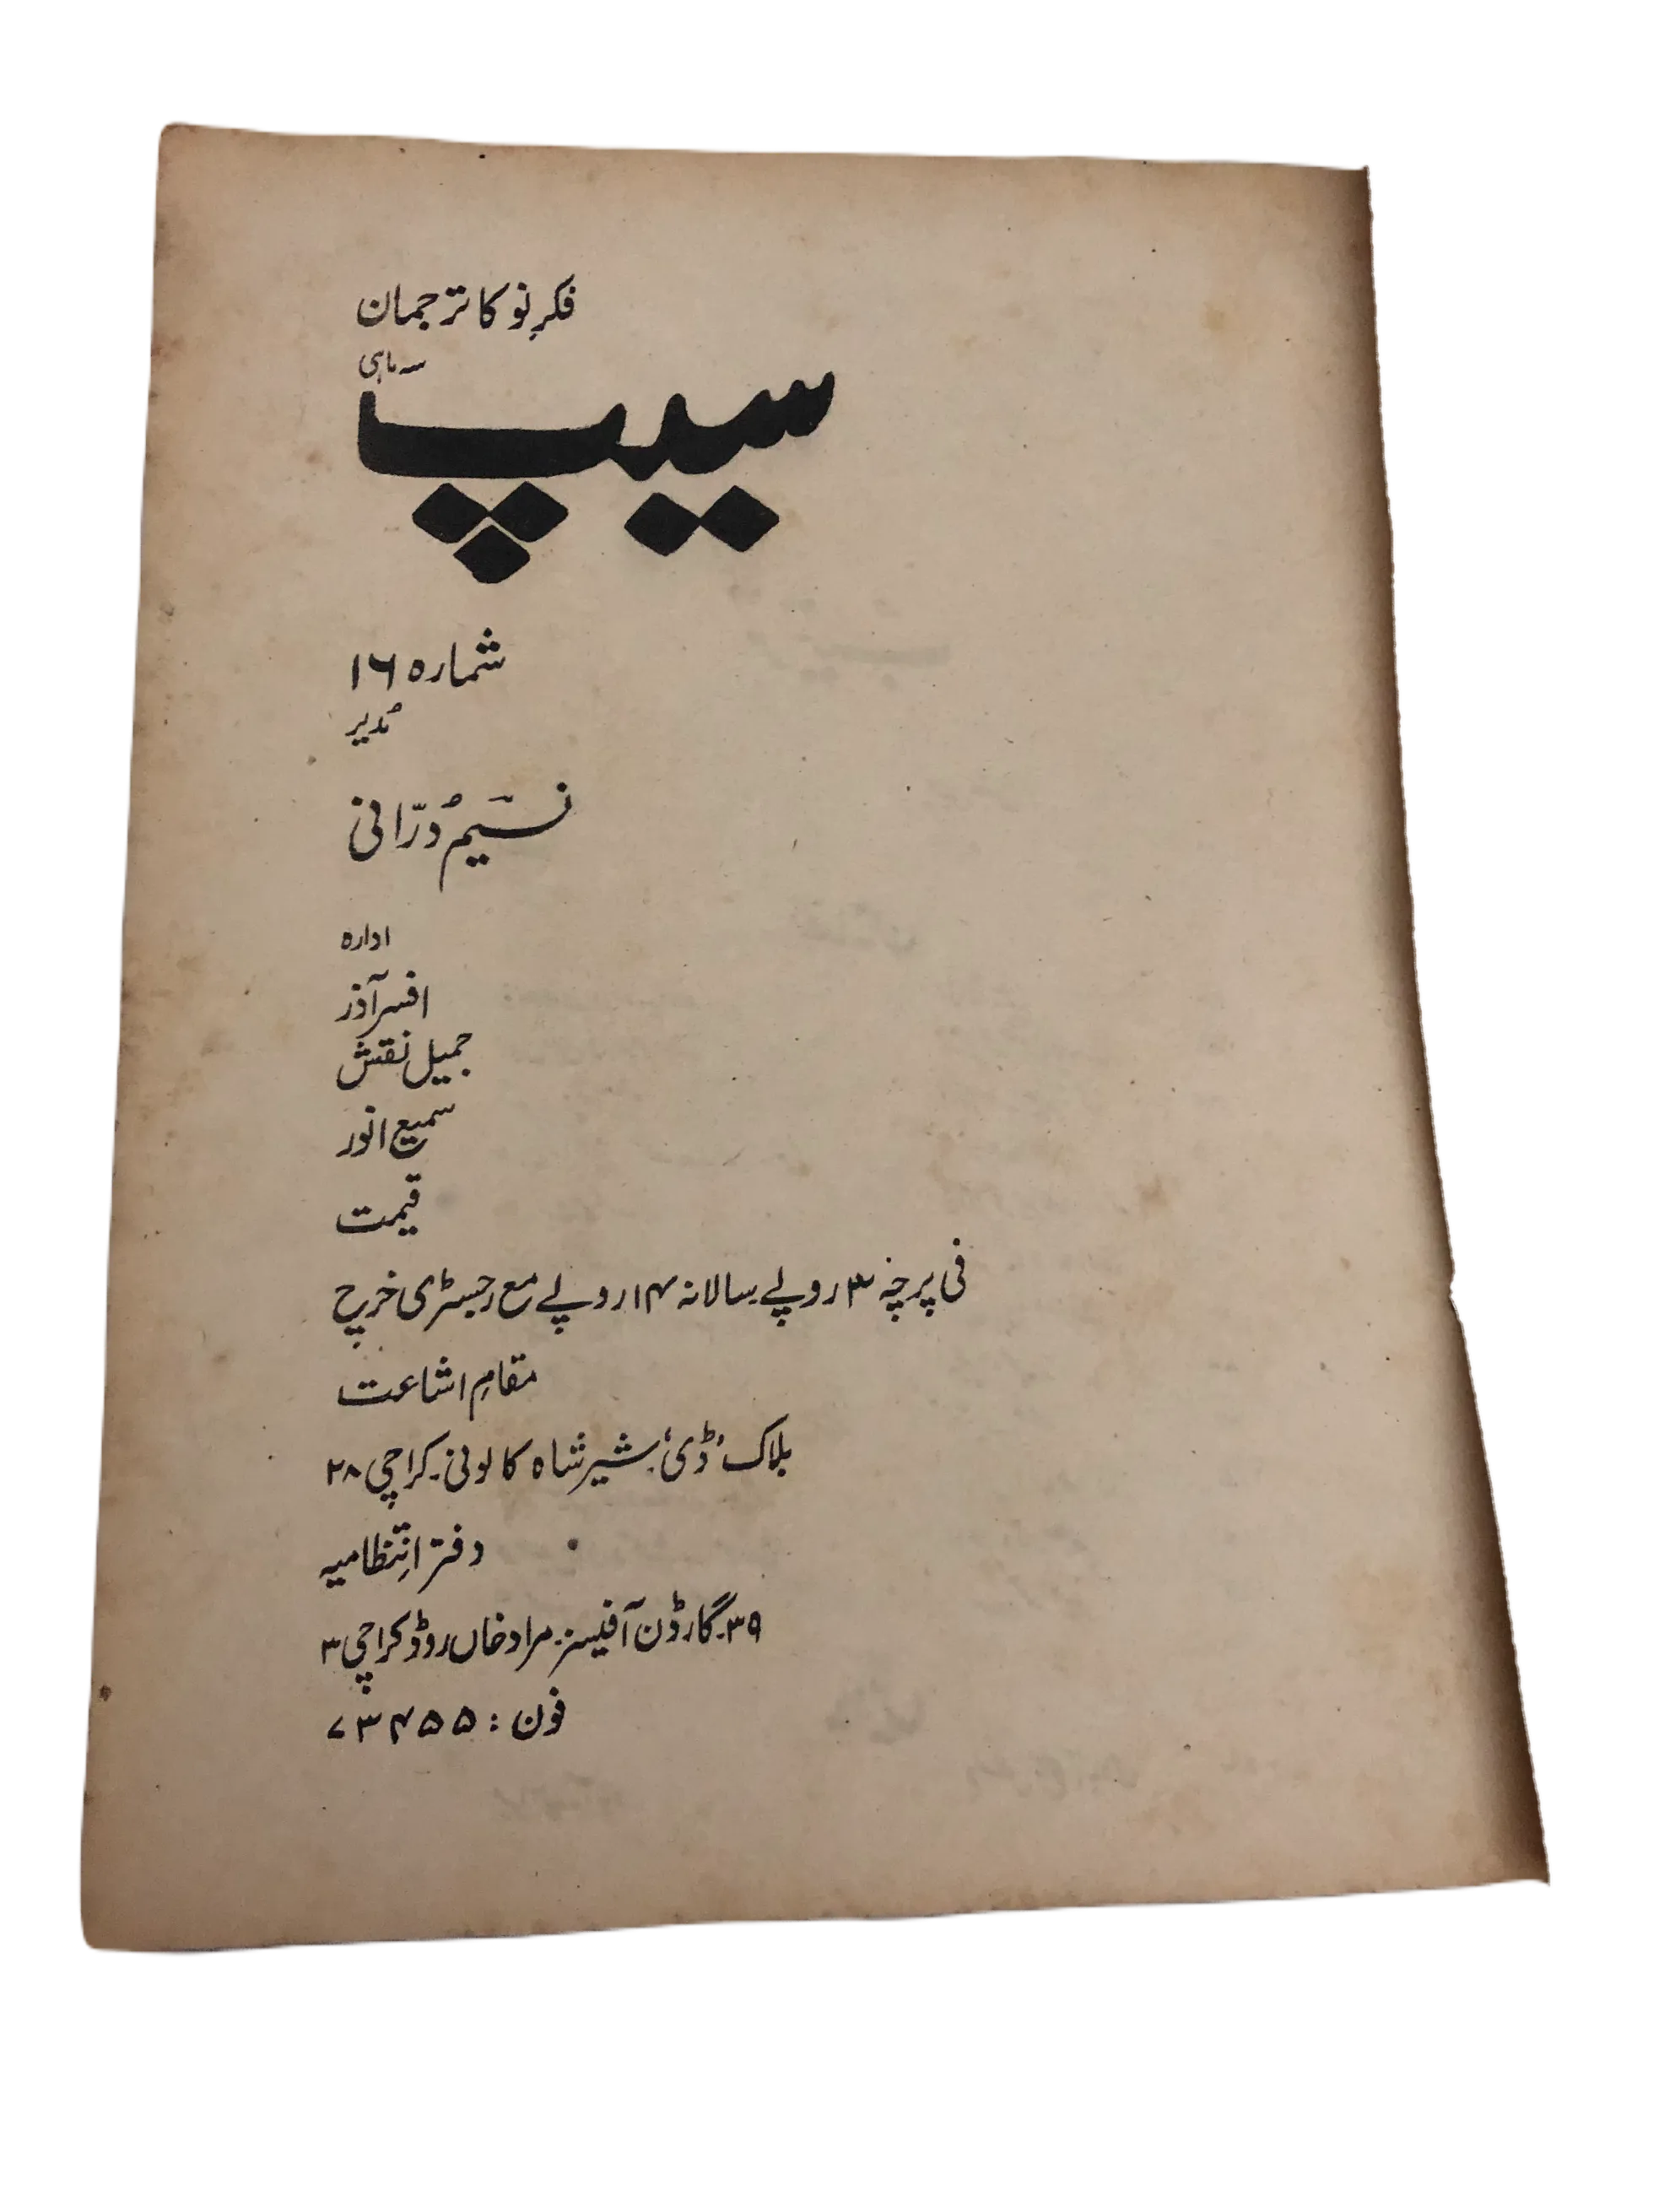 فکرِ نو کا ترجمان
سہ ماہی
سیپ
شمارہ ۱۶
مُدیر
نسیم دُرّانی
ادارہ
افسر آذر
جمیل نقش
سمیع انور
قیمت
فی پرچہ ۳ روپے سالانہ ۱۴ روپے مع رجسٹری خرچ
مقامِ اشاعت
بلاک 'ڈی' شیر شاہ کالونی۔ کراچی ۲۸
دفتر انتظامیہ
۳۹۔ گارڈن آفیسز۔ مراد خاں روڈ کراچی ۳
فون : ۷۳۴۵۵